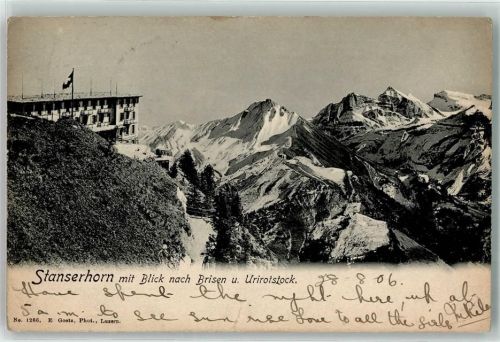 Stanserhorn mit Blick nach Brisen u. Urirotstock.
28 8 06.
Have spent the night here, up at
5 a.m. to see sun rise Love to all the girls
No. 1266. E Goetz, Phot., Luzern.